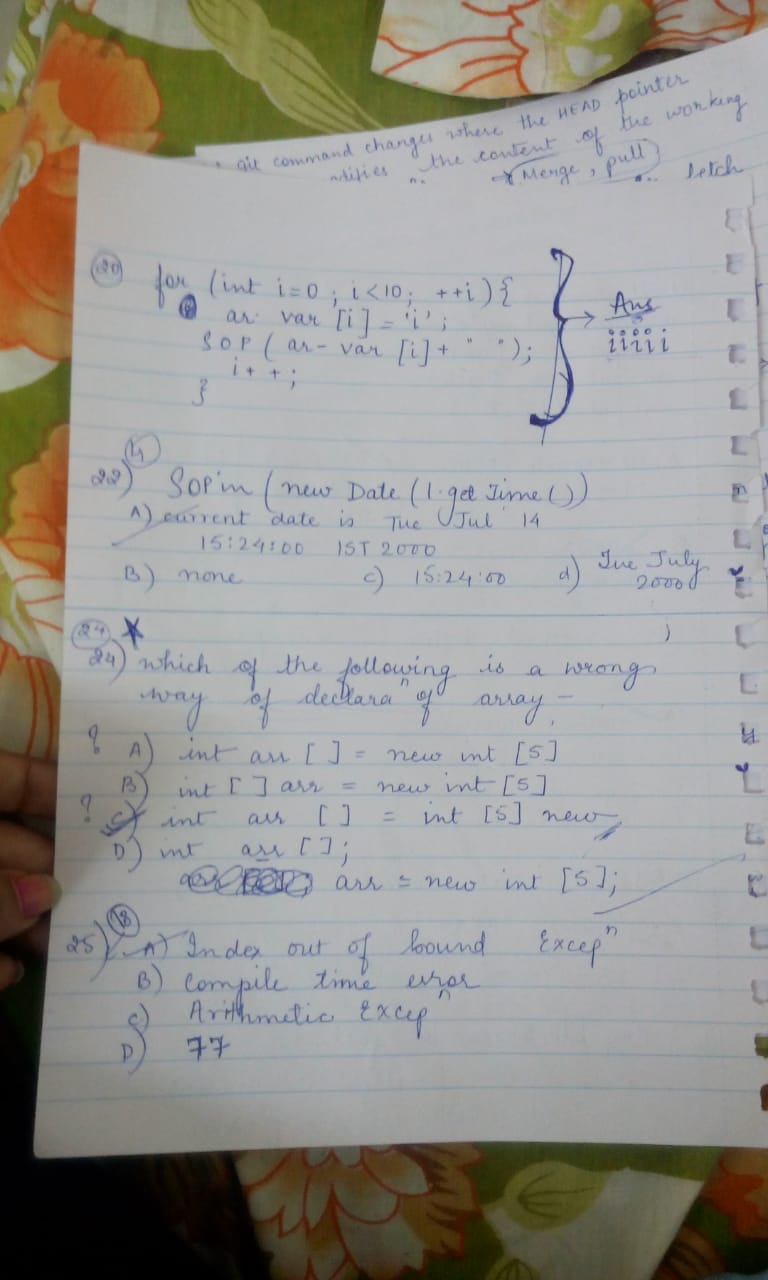 git command changes where the HEAD pointer
the content of the working
Merge, pull
fetch
20 for (int i=0 ; i<10; ++i) {
ar var [i] = 'i' ;
SOP ( ar- var [i] + " ");
i++;
}
Ans
iiiii
11
22) SOP'm ( new Date ( ). get Time ( ))
A) current date is Tue Jul 14
15:24:00 IST 2000
B) none c) 15:24:00 d) Tue July
2000
24
24) which of the following is a wrong
way of declaraⁿ of array -
? A) int arr [ ] = new int [5]
B) int [ ] arr = new int [5]
? C) int arr [ ] = int [5] new
D) int arr [ ];
arr = new int [5];
18
25) A) Index out of bound Excepⁿ
B) Compile time error
C) Arithmetic Excepⁿ
D) 77